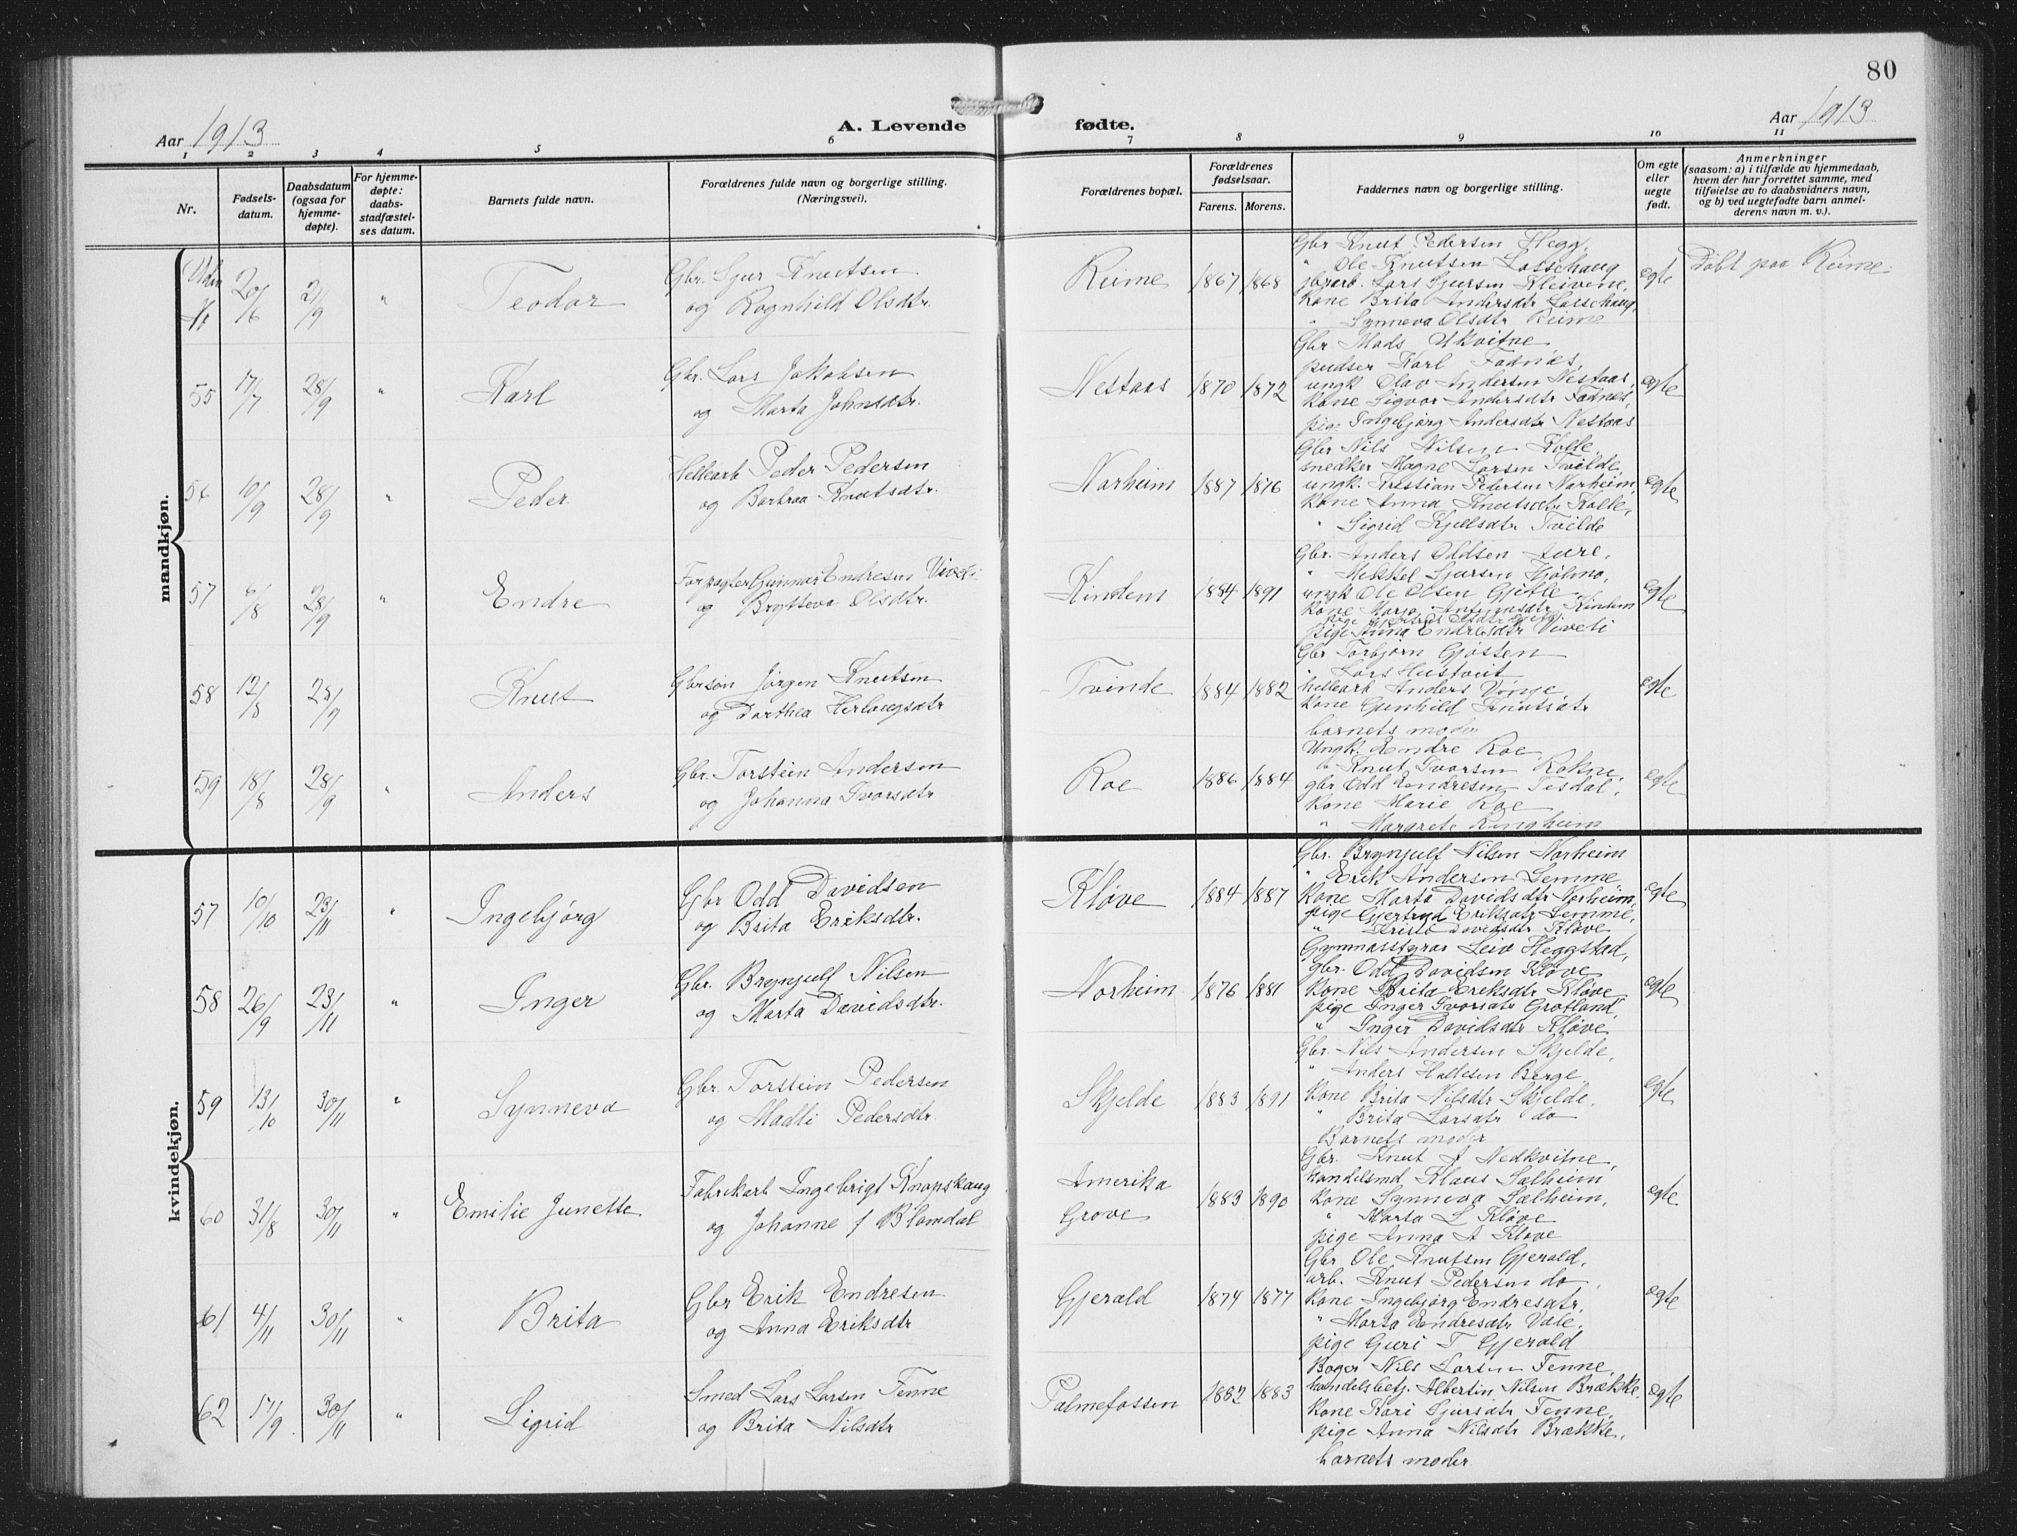 80
Aar 1913
A. Levende fødte.
Aar 1913
1 2 3 4 5 6 7 8 9 10 11
Nr.
Fødsels-
datum.
Daabsdatum
(ogsaa for
hjemme-
døpte).
For hjemme-
døpte:
daabs-
stadfæstel-
ses datum.
Barnets fulde navn.
Forældrenes fulde navn og borgerlige stilling.
(Næringsvei).
Forældrenes bopæl.
Forældrenes
fødselsaar.
Farens. Morens.
Faddernes navn og borgerlige stilling.
Om egte
eller
uegte
født.
Anmerkninger
(saasom: a) i tilfælde av hjemmedaab,
hvem der har forrettet samme, med
tilføielse av to daabsvidners navn,
og b) ved uegtefødte barn anmel-
derens navn m. v.).
mandkjøn.
Uden
Nr 20/6 21/9 " Teodor
Gbr. Sjur Knutsen
og Rognhild Olsdtr.
Reime 1867 1868
Gbr Knut Pedersen Hegg,
" Ole Knutsen Lasschaug
jbarb. Lars Sjursen Kleivene,
Kone Brita Andersdtr Lasschaug,
" Synneva Olsdtr Reime
egte
Døbt paa Reime.
55 17/7 28/9 " Karl
Gbr. Lars Jakobsen
og Marta Johnsdtr.
Nestaas 1870 1872
Gbr Mads Ukvitne,
pudser Karl Fadnæs,
ungk Olav Andersen Nestaas,
Kone Sigvor Andersdtr Fadnes,
pige Ingebjørg Andersdtr Nestaas
egte
56 10/9 28/9 " Peder
Hellearb Peder Pedersen
og Barbraa Knutsdtr.
Norheim 1887 1876
Gbr Nils Nilsen Kolle,
snedker Magne Larsen Tvilde,
ungk. Kristian Pedersen Norheim,
Kone Anna Knutsdtr Kolle,
" Sigrid Kjelsdtr Tvilde
egte
57 6/8 28/9 " Endre
Forpagter Gunnar Endresen Viveti
og Brytteva Olsdtr.
Kindem 1884 1891
Gbr. Anders Oddsen Aure,
" Mikkel Sjursen Hjølmo,
ungk Ole Olsen Gjetle
Kone Marja Kindem
pige Anna Endresdtr Viveti
egte
58 12/8 28/9 Knut
Gbrsøn Jørgen Knutsen
og Dorthea Herlaugsdtr
Tvinde 1884 1882
Gbr Torbjørn Gjøsten
" Lars Hustveit
hellearb Anders Vinje,
Kone Gunhild Knutsdtr
barnets moder
egte
59 18/8 28/9 " Anders
Gbr. Torstein Andersen
og Johanna Ivarsdtr
Roe 1886 1884
Ungk. Endre Roe
do Knut Ivarsen Rokne,
gbr Odd Endresen Tesdal,
Kone Marie Roe
" Margrete Ringheim
egte
kvindekjøn.
57 10/10 23/11 " Ingebjørg
Gbr Odd Davidsen
og Brita Eriksdtr.
Kløve 1884 1887
Gbr. Brynjulf Nilsen Norheim
" Erik Andersen Lemme
Kone Marta Davidsdtr Norheim,
pige Gjertrud Eriksdtr Lemme,
" Davidsdtr Kløve
egte
58 26/9 23/11 " Inger
Gbr. Brynjulf Nilsen
og Marta Davidsdtr.
Norheim 1876 1881
Gymnasstyrar Leiv Heggstad,
gbr. Odd Davidsen Kløve
Kone Brita Eriksdtr Kløve
pige Inger Ivarsdtr Grotland,
" Inger Davidsdtr Kløve
egte
59 13/10 30/11 " Synneva
Gbr. Torstein Pedersen
og Madli Pedersdtr.
Skjelde 1883 1891
Gbr. Nils Andersen Skjelde,
" Anders Hallesen Berge
Kone Brita Nilsdtr Skjelde.
" Brita Larsdtr do
Barnets moder
egte
60 31/8 30/11 " Emilie Junette
Fabrikarb Ingebrigt Knapskaug
og Johanne f Blomdal
Amerika
Grove 1883 1890
Gbr. Knut A Nedkvitne,
handelsmd Klaus Sælheim
Kone Synneva Sælheim,
" Marta L Kløve
pige Anna A Kløve
egte
61 4/11 30/11 " Brita
Gbr Erik Endresen
og Anna Eriksdtr
Gjerald 1874 1877
Gbr Ole Knutsen Gjerald,
arb. Knut Pedersen do,
Kone Ingebjørg Endresdtr,
" Marta Endresdtr Væle,
pige Guri T Gjerald
egte
62 17/9 30/11 " Sigrid
Smed Lars Larsen Fenne
og Brita Nilsdtr
Palmefossen 1882 1883
Bager Nils Larsen Fenne
handelsbetj. Albertin Nilsen Brække
Kone Kari Sjursdtr Fenne,
pige Anna Nilsdtr Brække,
barnets moder
egte